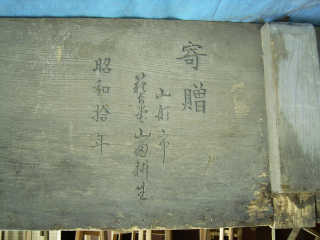 寄贈
山形市
山田耕生
昭和拾年